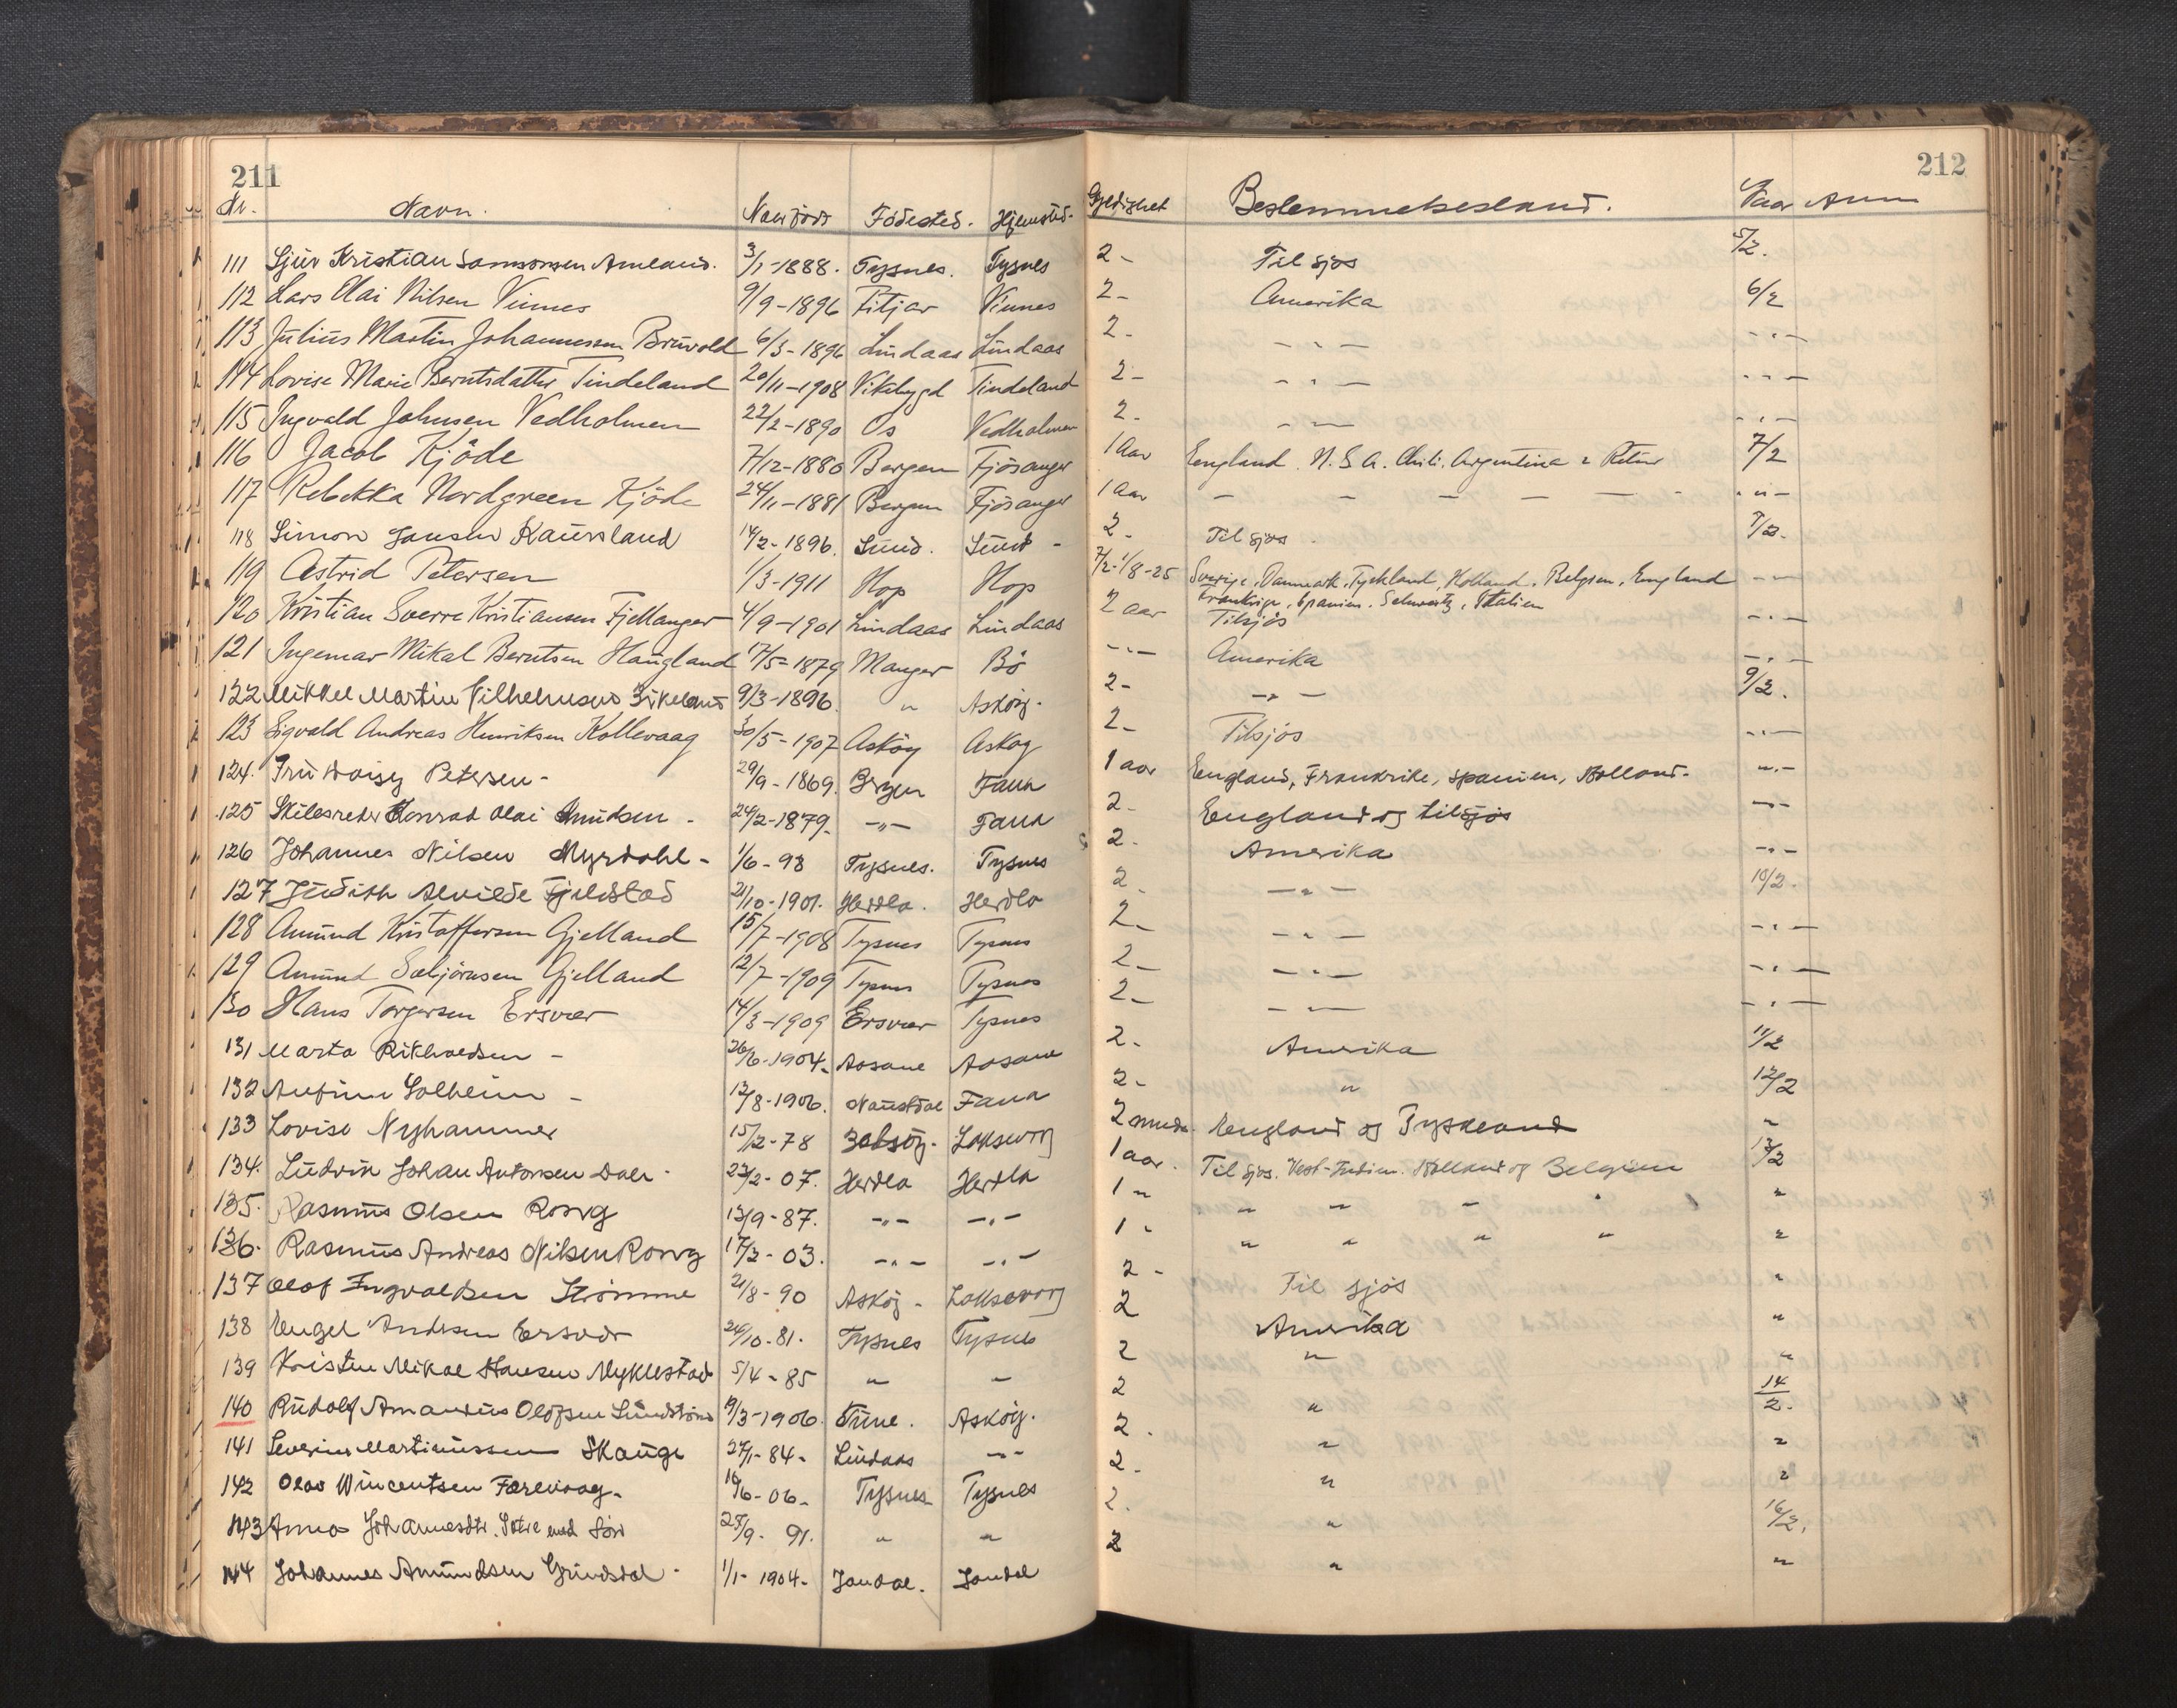 211
212
Nr. Navn. Naar født Fødested. Hjemsted. Gyldighet Bestemmelsesland. Naar Anm
111 Sjur Kristian Samsonsen Ameland. 3/1-1888. Tysnes. Tysnes 2- Til sjøs 5/2.
112 Lars Olai Nilsen Vinnes 9/9-1896 Fitjar Vinnes 2- Amerika 6/2
113 Julius Martin Johannessen Bruvold 6/3-1896 Lindaas Lindaas 2- -"- -"-
114 Lovise Marie Berntsdatter Tindeland 20/11-1908 Vikebygd Tindeland 2- -"- -"-
115 Ingvald Johnsen Vedholmen 22/2-1890 Os Vedholmen 2- -"- -"-
116 Jacob Kjöde 7/12-1880 Bergen Fjösanger 1 Aar England. U.S.A. Chili. Argentina & Retur 7/2
117 Rebekka Nordgreen Kjöde 24/11-1881 Bergen Fjösanger 1 Aar - - - - - - -"-
118 Simon Jansen Kausland 14/2-1896. Sund. Sund - 2- Til sjøs 7/2.
119 Astrid Petersen 1/3-1911 Hop Hop 7/2-1/8-25 Sverige, Danmark, Tyskland, Holland, Belgien, England -"-
Frankrige, Spanien, Schweitz, Italien
120 Kristian Sverre Kristiansen Fjellanger 4/9-1901 Lindaas Lindaas 2 aar Tilsjøs -"-
121 Ingemar Mikal Berntsen Haugland 17/5-1879 Manger Bö -"- Amerika -"-
122 Mikkel Martin Vilhelmsen Birkeland 9/3-1896. " Askøy. 2- -"- 9/2.
123 Sigvald Andreas Henriksen Kollevaag 30/5-1907 Askøy Askøy 2- Tilsjøs -"-
124. Fru Daisy Petersen - 29/9-1869. Bergen Fana 1 aar England, Frankrike, Spanien, Holland. "-
125 Skibsreder Konrad Olai Knudsen - 24/2-1879. -"- Fana 2- England og tilsjøs -"-
126 Johannes Nilsen Myrdahl - 1/6-93 Tysnes. Tysnes 2- Amerika -"-
127 Judith Alvilde Fjeldstad 21/10-1901. Herdla. Herdla 2- -"- 10/2.
128 Amund Kristoffersen Gjelland 15/7-1908 Tysnes Tysnes 2- -"- -"-
129 Amund Sæbjörnsen Gjelland 12/7-1909 Tysnes Tysnes 2- -"- -"-
130 Hans Torgersen Ersvær 14/3-1909 Ersvær Tysnes 2- -"- -"-
131 Marta Rikholdsen - 26/6-1904. Aasane Aasane 2- Amerika 11/2
132 Anfinn Solheim - 12/8-1906. Naustdal Fana 2- " 12/2
133 Lovise Nyhammer 15/2-78 Laksevåg 2 mndr. England og Tyskland "
134. Ludvik Johan Antonsen Dale. 23/2-07. Herdla Herdla 1 aar. Til sjøs. Vest-Indien. Holland og Belgien 13/2
135. Rasmus Olsen Rossvg 13/9-87. -"- -"- 1 " " " " " "
136. Rasmus Andreas Nilsen Rossvg 17/3-03. -"- -"- 1 " " " " " "
137 Olaf Ingvaldsen Strömme 21/8-90 Askøy - Laksevaag 2- Til sjøs "
138 Engel Andersen Ersvær 24/10-81. Tysnes Tysnes 2 Amerika "
139 Kristen Mikal Hansen Myklestad 5/4-85 " " 2 " "
140 Rudolf Amandus Olofsen Lundström 9/3-1906. Tune. Askøy. 2 " 14/2.
141 Severin Martinussen Skauge 27/1-84- Lindaas -"- 2. " "
142 Olav Wincentsen Færevaag. 16/6-06- Tysnes Tysnes 2. " "
143 Anna Johannesdtr. med søn 25/9-91. " " 2. " 16/2.
144 Johannes Amundsen Grindsdal. 1/1-1904- Jondal. Jondal 2 " "